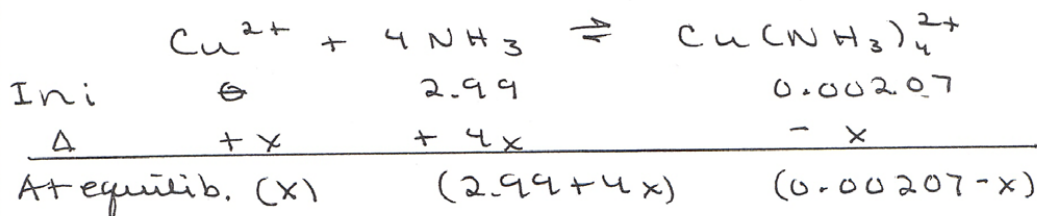 Cu²⁺ + 4 NH₃ ⇌ Cu(NH₃)₄²⁺
Ini 0 2.99 0.00207
Δ +x +4x -x
At equilib. (x) (2.99+4x) (0.00207-x)